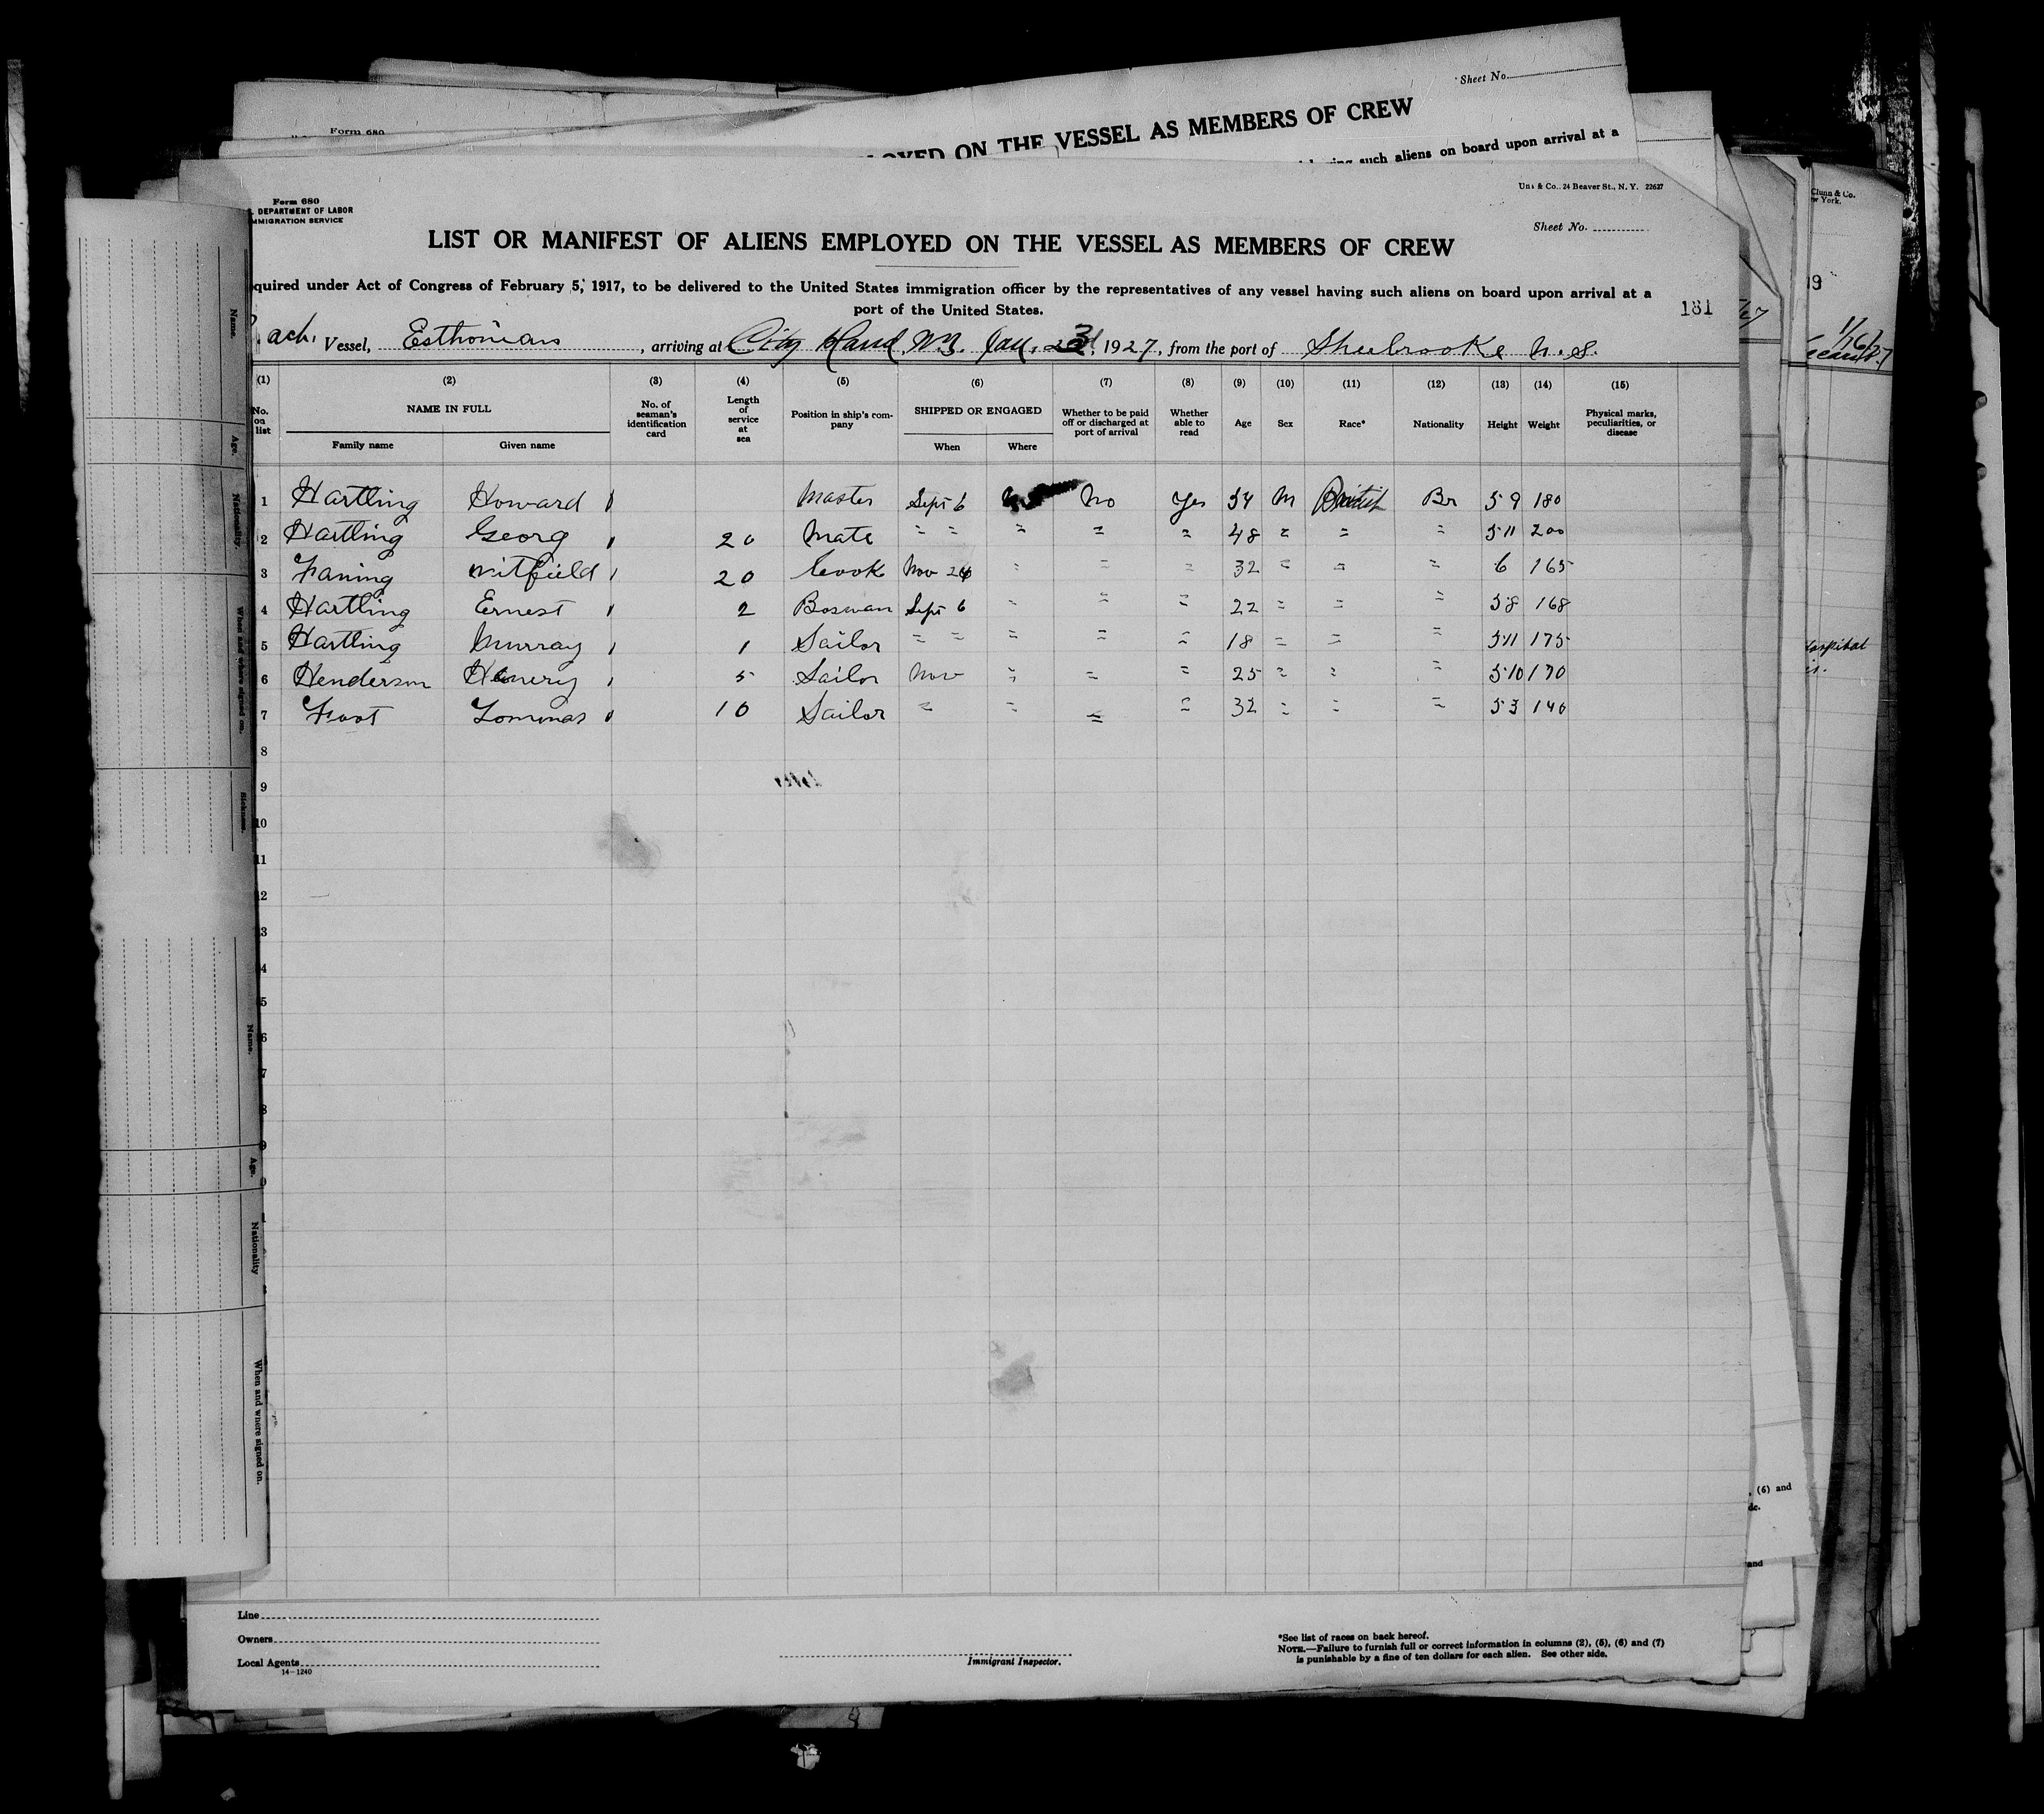 Sheet No.
Form 680
EMPLOYED ON THE VESSEL AS MEMBERS OF CREW
such aliens on board upon arrival at a
& Co., 24 Beaver St., N. Y. 22627
Clunn & Co.
New York.
Form 680
DEPARTMENT OF LABOR
IMMIGRATION SERVICE
Sheet No.
LIST OR MANIFEST OF ALIENS EMPLOYED ON THE VESSEL AS MEMBERS OF CREW
quired under Act of Congress of February 5, 1917, to be delivered to the United States immigration officer by the representatives of any vessel having such aliens on board upon arrival at a
port of the United States.
181
Vessel, Esthonian, arriving at City Island, N.Y. Jan. 1927, from the port of Sheebrooke N.S.
(1) (2) (3) (4) (5) (6) (7) (8) (9) (10) (11) (12) (13) (14) (15)
No. on list NAME IN FULL Family name Given name No. of seaman's identification card Length of service at sea Position in ship's company SHIPPED OR ENGAGED When Where Whether to be paid off or discharged at port of arrival Whether able to read Age Sex Race* Nationality Height Weight Physical marks, peculiarities, or disease
1 Hartling Howard Master Sept 6 No Yes 54 M British Br 5 9 180
2 Hartling Georg 20 Mate " " " " " 48 " " " 5 11 200
3 Faning Witfield 20 Cook Nov 26 " " " 32 " " " 6 165
4 Hartling Ernest 2 Boswan Sept 6 " " " 22 " " " 5 8 168
5 Hartling Murray 1 Sailor " " " " " 18 " " " 5 11 175
6 Henderson Henery 5 Sailor Nov " " " 25 " " " 5 10 170
7 Foot Tommas 10 Sailor " " " " 32 " " " 5 3 140
8
9
10
11
12
13
4
5
6
7
8
9
0
1
Name.
Age.
Nationality
When and where signed on.
Sickness.
Name.
Age.
Nationality
When and where signed on.
Hospital
Line
Owners
Local Agents
14-1240
Immigrant Inspector.
*See list of races on back hereof.
NOTE.—Failure to furnish full or correct information in columns (2), (5), (6) and (7)
is punishable by a fine of ten dollars for each alien. See other side.
, (6) and
de.
and